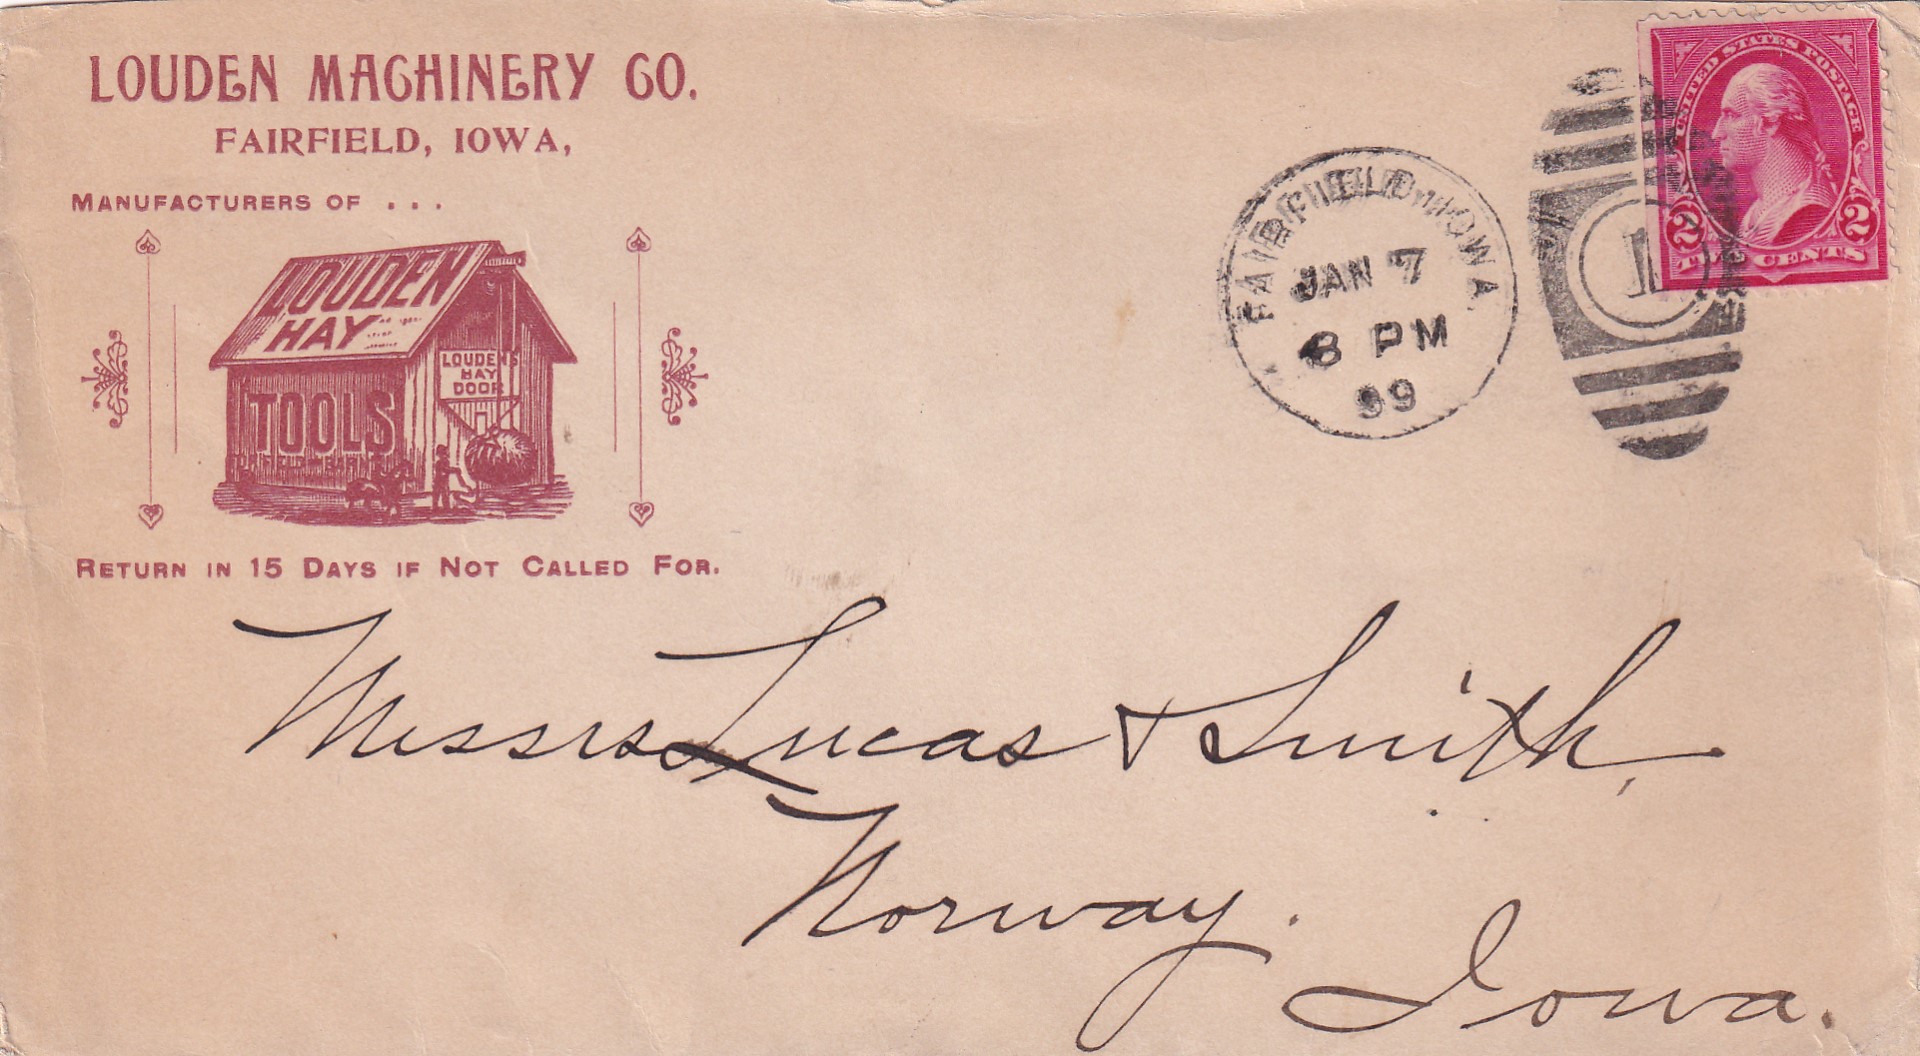 LOUDEN MACHINERY CO.
FAIRFIELD, IOWA,
MANUFACTURERS OF . . .
LOUDEN
HAY
LOUDEN'S
HAY
DOOR
TOOLS
RETURN IN 15 DAYS IF NOT CALLED FOR.
FAIRFIELD, IOWA
JAN 7
8 PM
99
1
UNITED STATES POSTAGE
2 2
TWO CENTS
Messrs Lucas & Smith,
Norway.
Iowa.